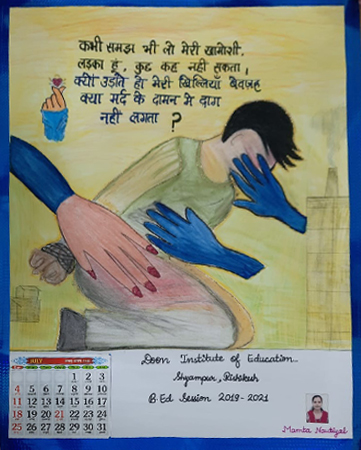 कभी समझ भी लो मेरी खामोशी,
लड़का हूं, कुछ कह नहीं सकता,
क्यों उड़ाते हो मेरी खिल्लियाँ बेवजह
क्या मर्द के दामन में दाग
नहीं लगता ?
JULY
1 2 3
4 5 6 7 8 9 10
11 12 13 14 15 16 17
18 19 20 21 22 23 24
25 26 27 28 29 30 31
Doon Institute of Education..
Shyampur, Rishikesh
B Ed Session 2019-2021
Mamta Nautiyal